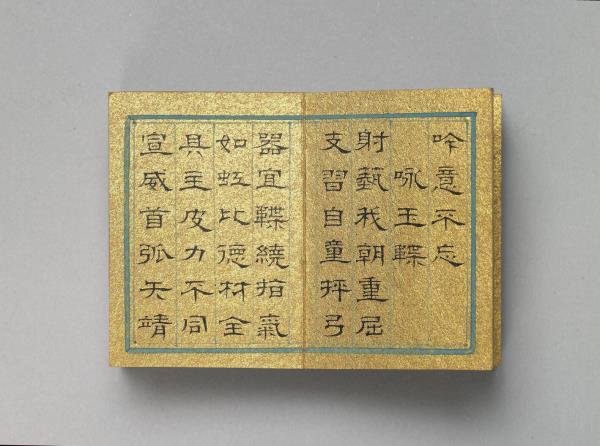 吟意不忘
咏玉韘
射藝我朝重屈
支習自童抨弓
器宜韘繞拍氣
如虹比德材全
具主皮力不同
宣威首弧矢靖